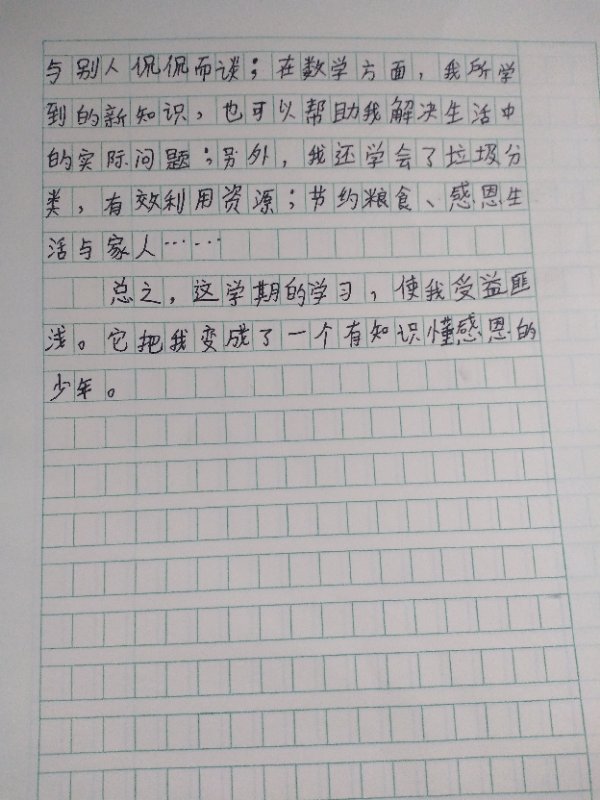 与别人侃侃而谈；在数学方面，我所学
到的新知识，也可以帮助我解决生活中
的实际问题；另外，我还学会了垃圾分
类，有效利用资源；节约粮食、感恩生
活与家人……
总之，这学期的学习，使我受益匪
浅。它把我变成了一个有知识懂感恩的
少年。